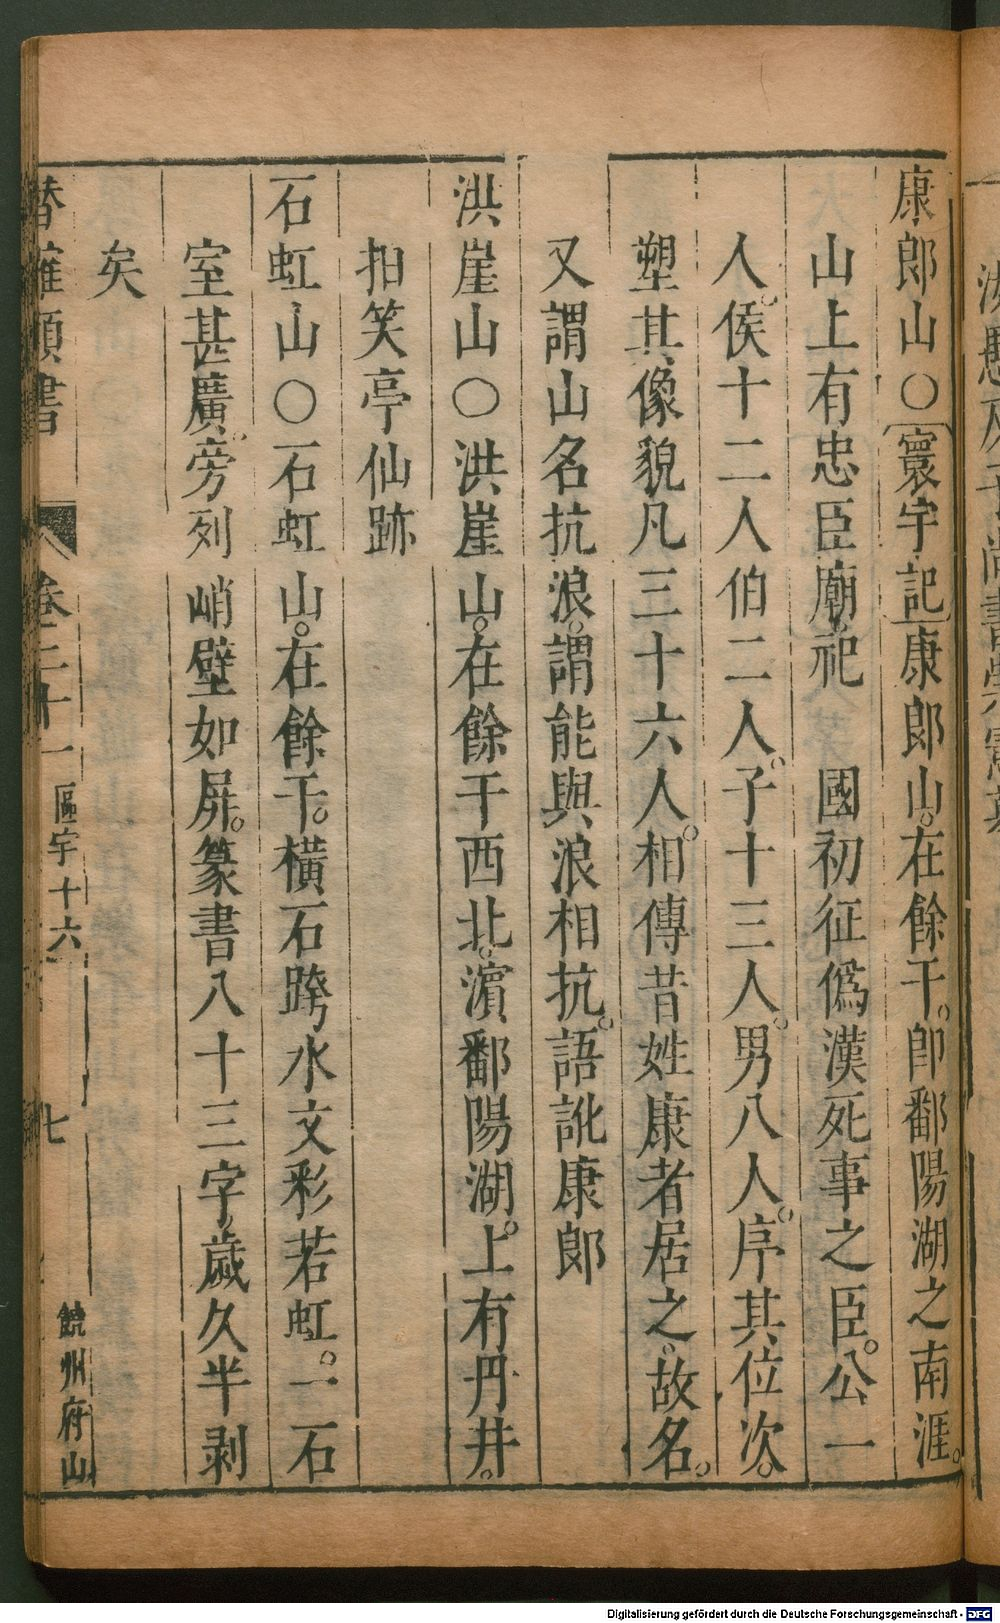 康郎山○寰宇記康郎山。在餘干。卽鄱陽湖之南涯。
山上有忠臣廟。祀 國初征偽漢死事之臣。公一
人。侯十二人伯二人。子十三人。男八人。序其位次。
塑其像貌凡三十六人。相傳昔姓康者居之。故名。
又謂山名抗浪。謂能與浪相抗。語訛康郎
洪崖山○洪崖山。在餘干西北。濵鄱陽湖。上有丹井。
拍笑亭仙跡
石虹山○石虹山。在餘干。橫石跨水文彩若虹。一石
室甚廣。旁列峭壁如屏。篆書八十三字。歲久半剥
矣
潛確類書 卷二十一 區宇十六 七 饒州府山